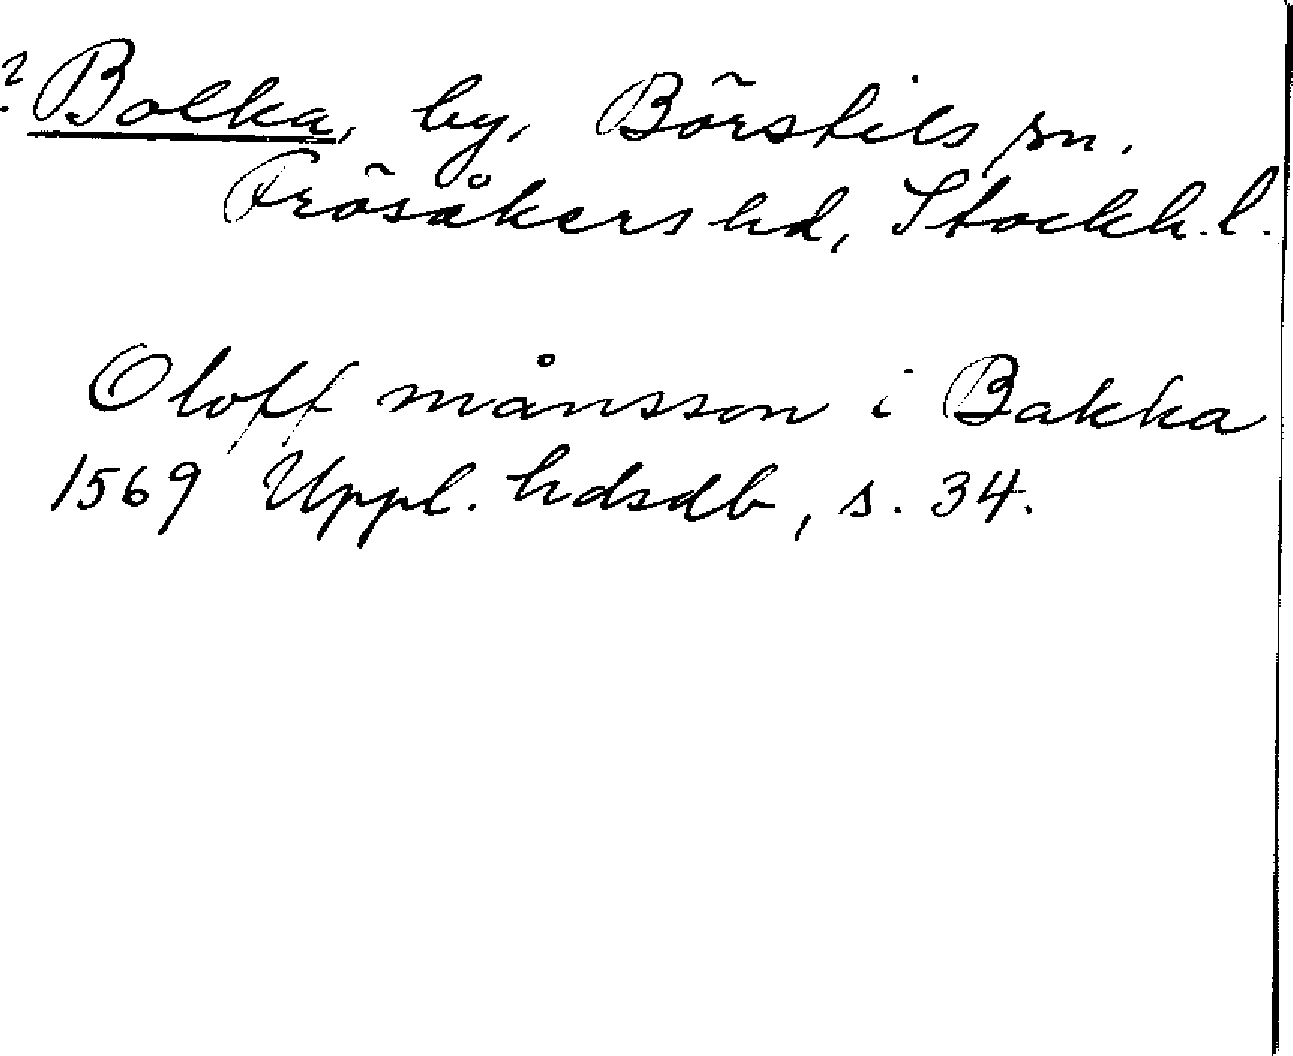 ? Bolka, by, Börstils sn.
Frösåkers hd, Stockh. l.
Oloff månsson i Bakka
1569 Uppl. hdsdb, s. 34.